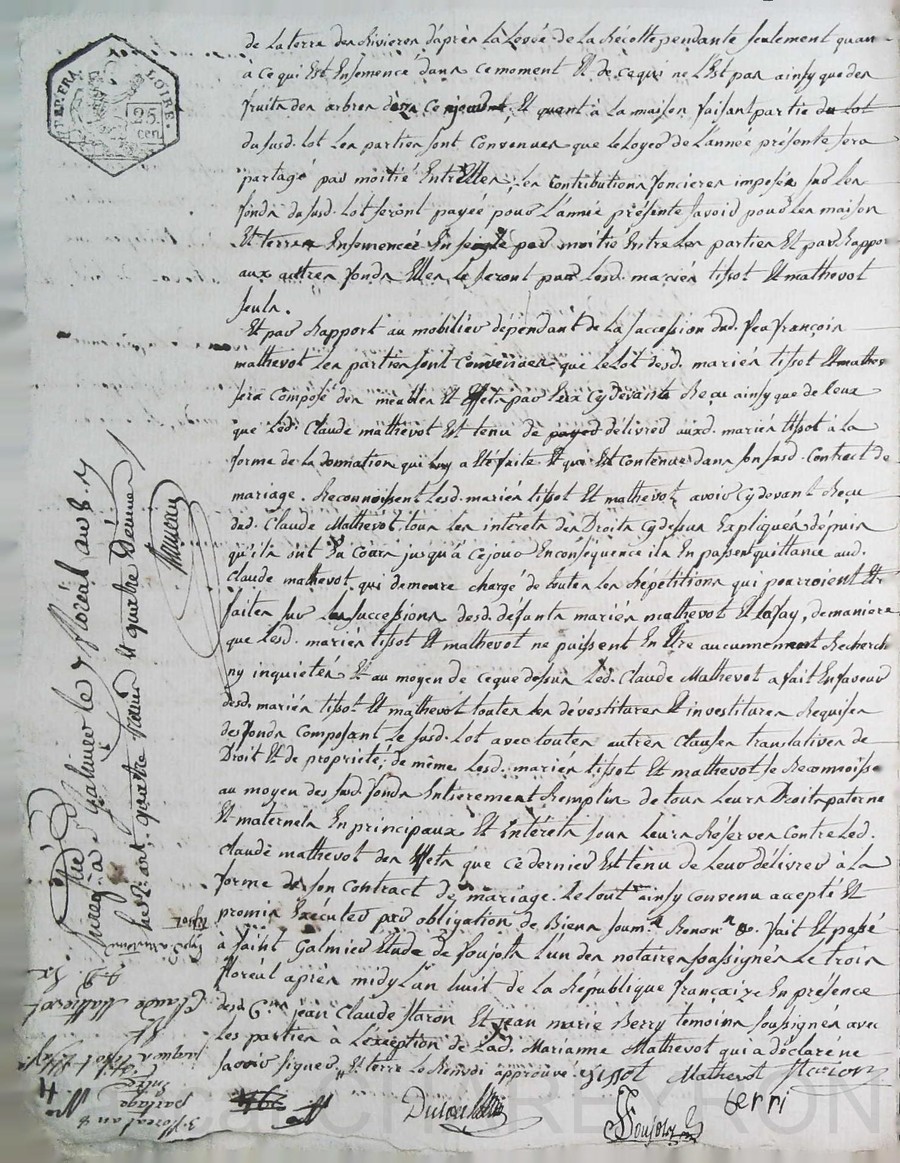 de la terre des Rivieres d'après la Levée de la Récolte pendante seulement quan
à ce qui Est Ensemencé dans ce moment Et de ce qui ne l'Est pas ainsy que des
fruits des arbres Et quant à la maison faisant partie du Lot
du susd. lot les parties sont Convenues que le Loyer de L'année présente sera
partagé par moitié Entr'Elles, les Contributions foncieres imposés sur les
fonds du susd. Lot seront payée pour L'année présente savoir pour les maison
Et terres Ensemencée En seigle par moitié Entre les parties Et par Rappor
aux autres fonds Elles le seront par lesd. mariés tissot Et mathevot
seuls.
Et par Rapport au mobilier dépendant de la succession dud. feu françois
mathevot les parties sont Convenues que le Lot desd. mariés tissot Et mathev
sera Composé des meubles Et Effets par Eux Cy devant Reçu ainsy que de Ceux
que led. Claude mathevot Est tenu de délivrer auxd. mariés tissot à la
forme de la donnation qui luy a Eté faite Et qui Est Contenue dans son susd. Contract de
mariage. Reconnoissent lesd. mariés tissot Et mathevot avoir Cy devant Reçu
dud. Claude Mathevot tous les intérêts des Droits Cy dessus Expliqués depuis
qu'ils ont Eu Cours jusqu'à Ce jour En conséquence ils En passent quittance aud.
Claude mathevot qui demeure chargé de toutes les Répétitions qui pourroient Etr
faites sur les successions desd. défunts mariés mathevot Et Lafay, de maniere
que lesd. mariés tissot Et mathevot ne puissent En Etre aucunnement Recherch
ny inquietés Et au moyen de Ce que dessus Led. Claude Mathevot a fait En faveur
desd. mariés tissot Et mathevot toutes les dévestitures Et investitures Requises
des fonds Composant Le susd. Lot avec toutes autres Clauses translatives de
Droit Et de propriété; de même lesd. mariés tissot Et mathevot se Reconnoisse
au moyen des susd. fonds Entierement Remplis de tous Leurs Droits paterne
Et maternels En principaux Et Intérêts sous Leurs Réserves Contre Led.
Claude mathevot des Effets que Ce dernier Est tenu de Leur délivrer à la
forme de son Contract de mariage. Le tout ainsy Convenu accepté Et
promis Exécuter par obligation de Biens soum.n Renon.n &. fait Et passé
à Saint Galmier Etude de foujols L'un des notaires soussignés Le trois
floréal après midy L'an huit de la République française En présence
des Cns jean Claude flaron Et jean marie Berry temoins soussignés avec
les parties à L'exception de Lad. Marianne Mathevot qui a déclaré ne
savoir signer Et terre Le Remdi approuvé. Tissot Mathevot flaron
Berri
foujols
REP. FRA.
LOIRE.
25
cen.
Enreg. à S.t Galmier le 7 floréal an 8.
quatre francs et quatre Décimes
3 floréal an 8
partage
Entre
jacques tissot
Et
Claude Mathevot
CHAREYRON